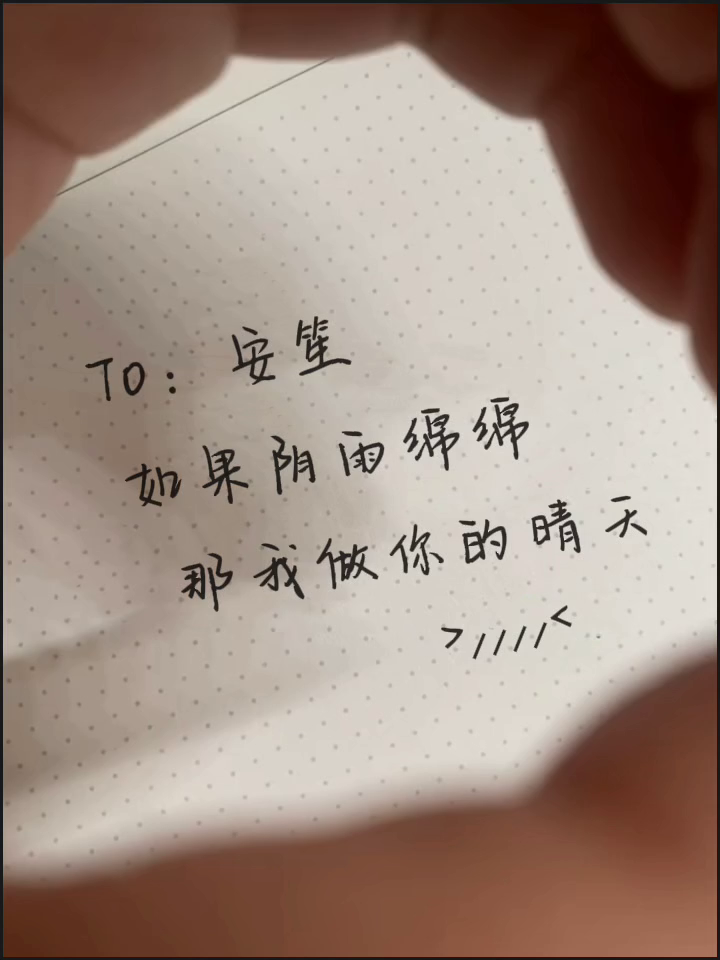 TO: 安笙
如果阴雨绵绵
那我做你的晴天
>////<